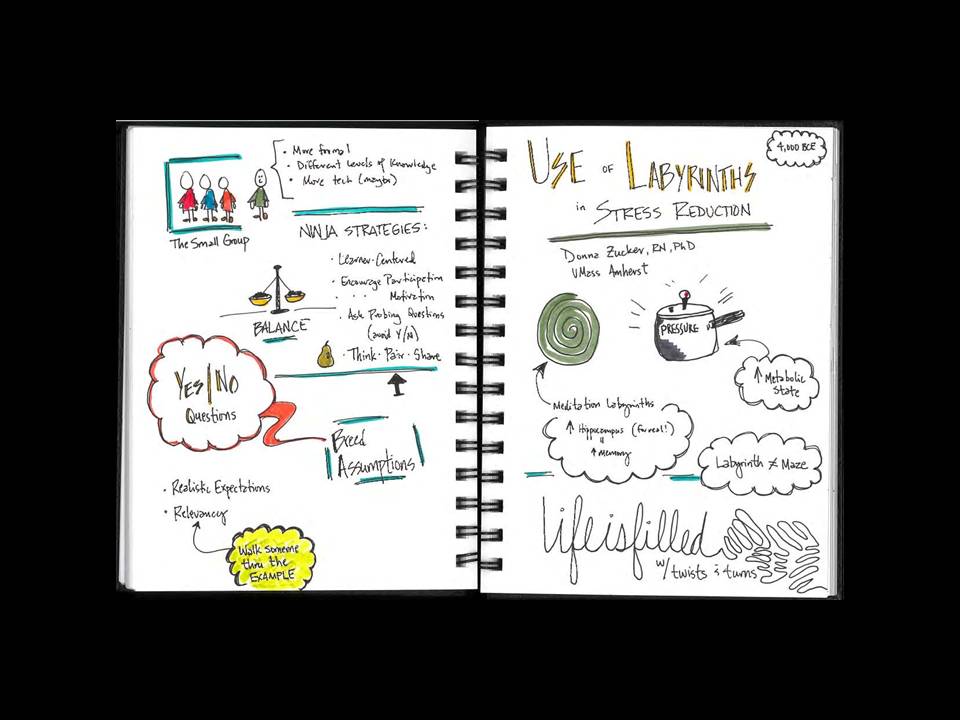 • More formal
• Different Levels of Knowledge
• More tech (maybe)
The Small Group
NINJA STRATEGIES:
• Learner-Centered
• Encourage Participation
• " " Motivation
• Ask Probing Questions
(avoid Y/N)
• Think • Pair • Share
BALANCE
Yes/No
Questions
Breed
Assumptions
• Realistic Expectations
• Relevancy
Walk someone
thru the
EXAMPLE
4,000 BCE
USE OF LABYRINTHS
in STRESS REDUCTION
Donna Zucker, RN, PhD
UMass Amherst
PRESSURE
↑ Metabolic
State
Meditation Labyrinths
↑ Hippocampus (for real!)
=
↑ Memory
Labyrinth ≠ Maze
Life is filled
w/ twists & turns